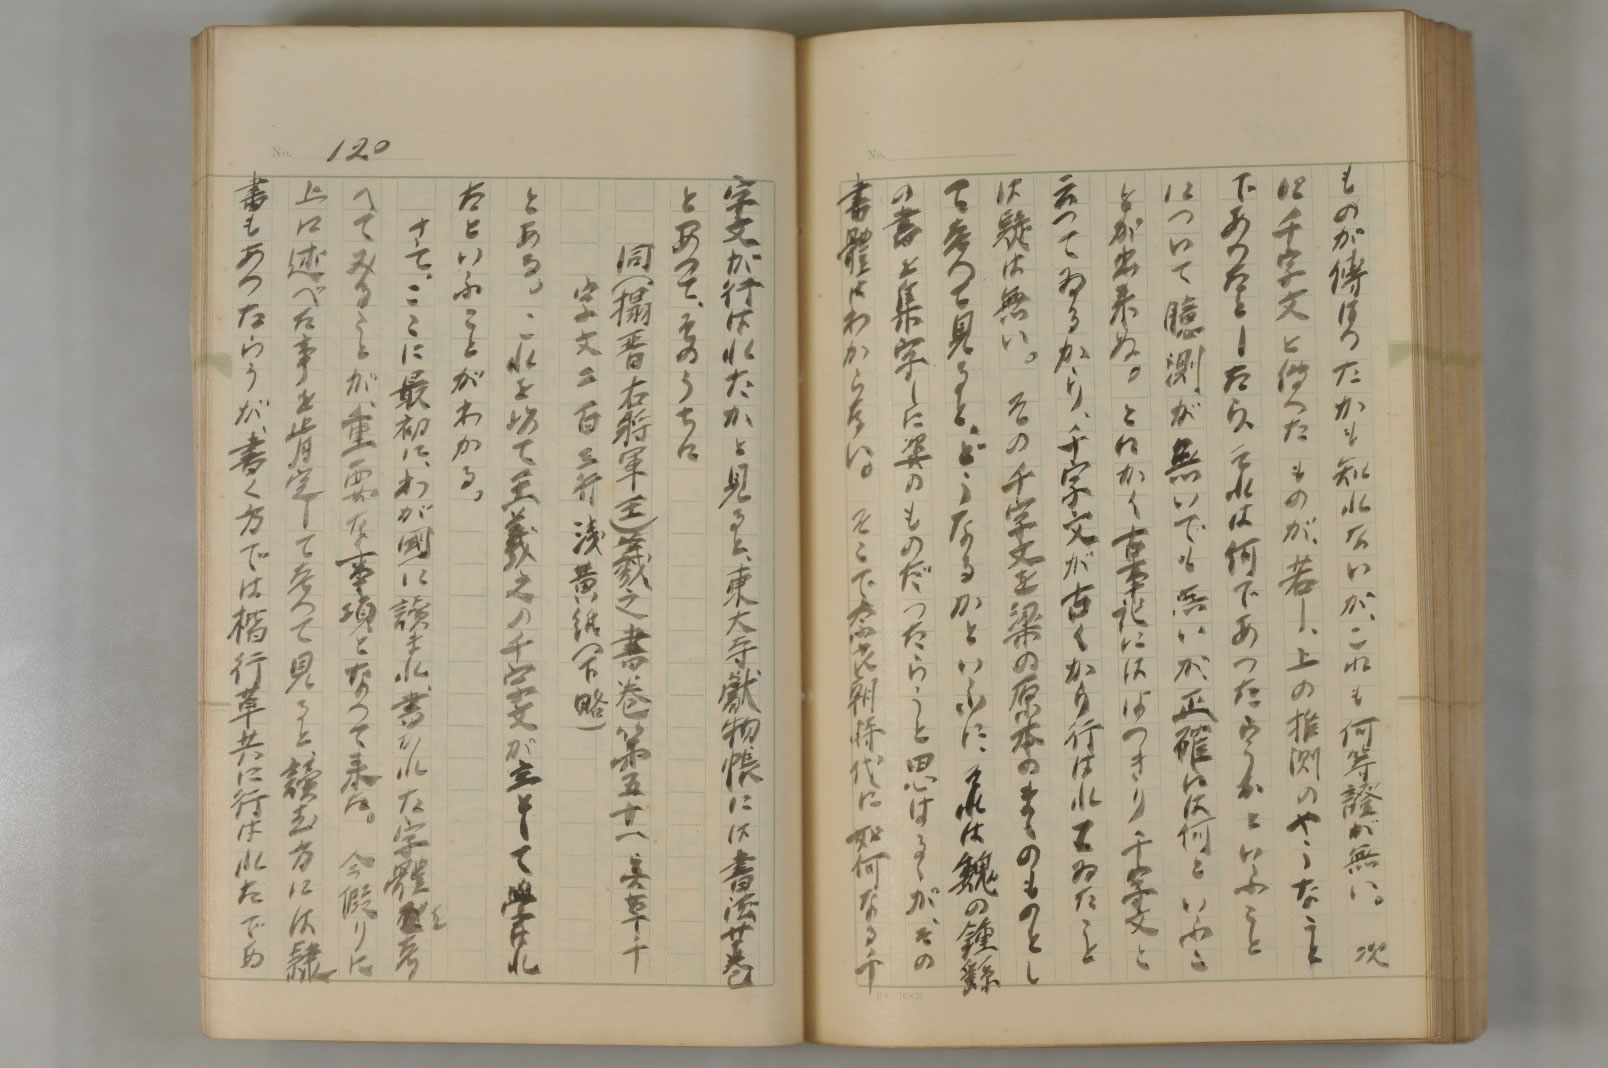 No.
ものが傳はつたかも知れないが、これも何等證が無い。次
に千字文と傳へたものが、若し、上の推測のやうなこと
であつたとしたら、それは何であつたらうかといふこと
について臆測が無いでも無いが、正確には何といふこ
とが出來ぬ。とにかく古事記にははつきり千字文と
云つてゐるから、千字文が古くから行はれてゐたこと
は疑は無い。その千字文を梁の原本のまゝのものとし
て考へて見ると、どうなるかといふに、それは魏の鍾繇
の書を集字した姿のものだつたらうと思はるゝが、その
書體はわからない。そこで奈良朝時代に如何なる千
No. 120
字文が行はれたかと見ると、東大寺獻物帳には書法廿卷
とあつて、そのうちに
同(搨晋右將軍王羲之書卷)第五十八 眞草千
字文二百三行 淺黄紙(下略)
とある。これを以て王羲之の千字文が主として學ばれ
たといふことがわかる。
さて、ここに最初に、わが國に讀まれ、書かれた字體を考
へて みることが、重要な事項となつて來た。今假りに
上に述べた事を肯定して考へて見ると讀む方には隷
書もあつたらうが、書く方では楷行草共に行はれたであ